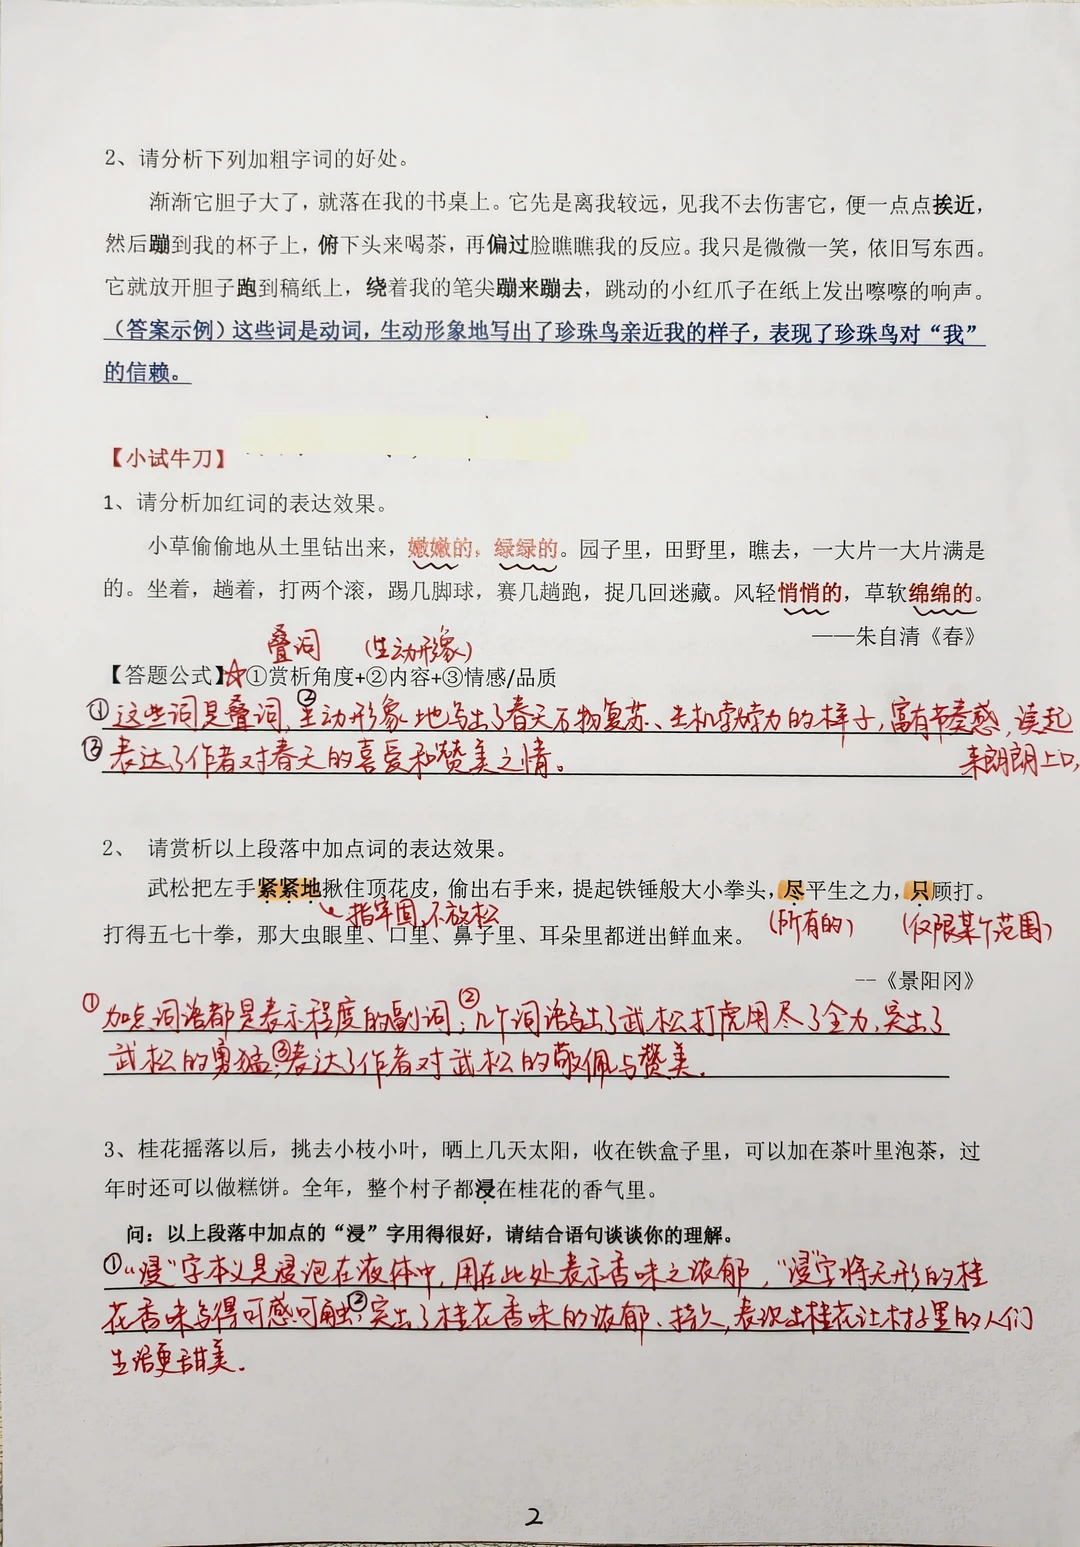 2、请分析下列加粗字词的好处。
渐渐它胆子大了，就落在我的书桌上。它先是离我较远，见我不去伤害它，便一点点挨近，
然后蹦到我的杯子上，俯下头来喝茶，再偏过脸瞧瞧我的反应。我只是微微一笑，依旧写东西。
它就放开胆子跑到稿纸上，绕着我的笔尖蹦来蹦去，跳动的小红爪子在纸上发出嚓嚓的响声。
（答案示例）这些词是动词，生动形象地写出了珍珠鸟亲近我的样子，表现了珍珠鸟对“我”
的信赖。
【小试牛刀】
1、请分析加红词的表达效果。
小草偷偷地从土里钻出来，嫩嫩的，绿绿的。园子里，田野里，瞧去，一大片一大片满是
的。坐着，趟着，打两个滚，踢几脚球，赛几趟跑，捉几回迷藏。风轻悄悄的，草软绵绵的。
——朱自清《春》
叠词 （生动形象）
【答题公式】☆①赏析角度+②内容+③情感/品质
①这些词是叠词，②生动形象地写出了春天万物复苏、生机勃勃的样子，富有节奏感，读起
来朗朗上口，
③表达了作者对春天的喜爱和赞美之情。
2、 请赏析以上段落中加点词的表达效果。
武松把左手紧紧地揪住顶花皮，偷出右手来，提起铁锤般大小拳头，尽平生之力，只顾打。
指牢固，不放松 （所有的） （仅限某个范围）
打得五七十拳，那大虫眼里、口里、鼻子里、耳朵里都迸出鲜血来。
--《景阳冈》
①加点词语都是表示程度的副词；②几个词语写出了武松打虎用尽了全力，突出了
武松的勇猛；③表达了作者对武松的敬佩与赞美.
3、桂花摇落以后，挑去小枝小叶，晒上几天太阳，收在铁盒子里，可以加在茶叶里泡茶，过
年时还可以做糕饼。全年，整个村子都浸在桂花的香气里。
问：以上段落中加点的“浸”字用得很好，请结合语句谈谈你的理解。
①“浸”字本义是浸泡在液体中，用在此处表示香味之浓郁，“浸”字将无形的桂
花香味写得可感可触；②突出了桂花香味的浓郁、持久，表现出桂花让村子里的人们
生活更甜美.
2